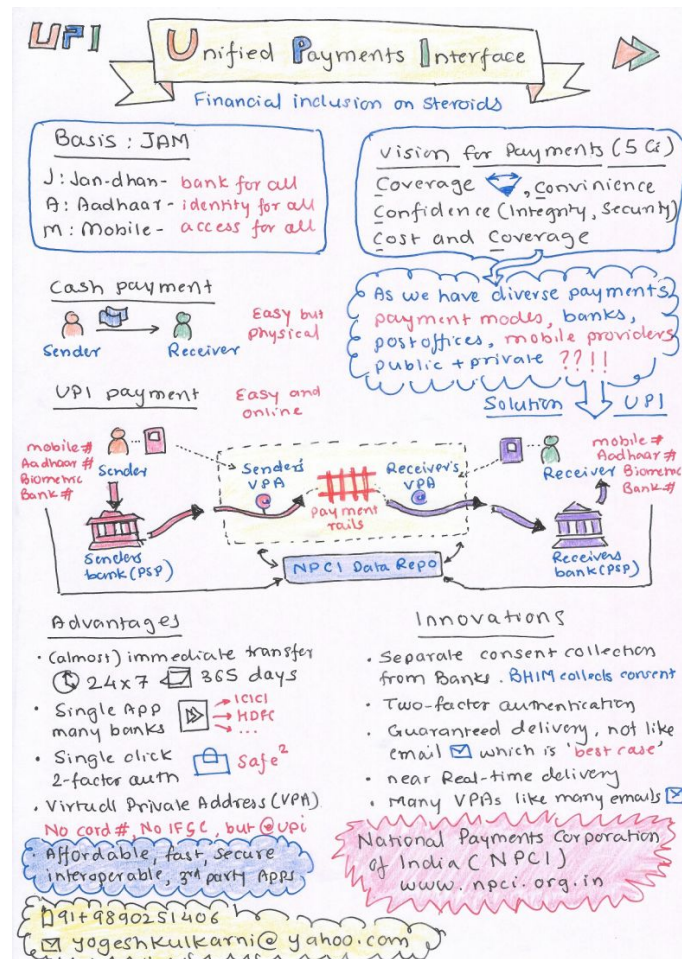 UPI
Unified Payments Interface
Financial inclusion on steroids
Basis : JAM
J : Jan-dhan - bank for all
A : Aadhaar - identity for all
M : Mobile - access for all
Vision for Payments (5 Cs)
Coverage , Convinience
Confidence (Integrity, Security)
Cost and Coverage
As we have diverse payments
payment modes, banks,
postoffices, mobile providers
public + private ??!!
Solution UPI
Cash payment
Easy but
physical
Sender Receiver
UPI payment
Easy and
online
mobile #
Aadhaar #
Biometric
Bank #
Sender
Senders
VPA
payment
rails
Receiver's
VPA
Receiver
mobile #
Aadhaar #
Biometric
Bank #
Senders
bank (PSP)
NPCI Data Repo
Receivers
bank (PSP)
Advantages
· (almost) immediate transfer
24x7 365 days
· Single App
many banks
ICICI
HDFC
...
· Single click
2-factor auth
Safe²
· Virtual Private Address (VPA)
No card #, No IFSC, but @upi
· Affordable, fast, secure
interoperable, 3rd party Apps
Innovations
· Separate consent collection
from Banks. BHIM collects consent
· Two-factor authentication
· Guaranteed delivery, not like
email which is 'best case'
· near Real-time delivery
· Many VPAs like many emails
National Payments Corporation
of India (NPCI)
www.npci.org.in
91+9890251406
yogeshkulkarni@yahoo.com